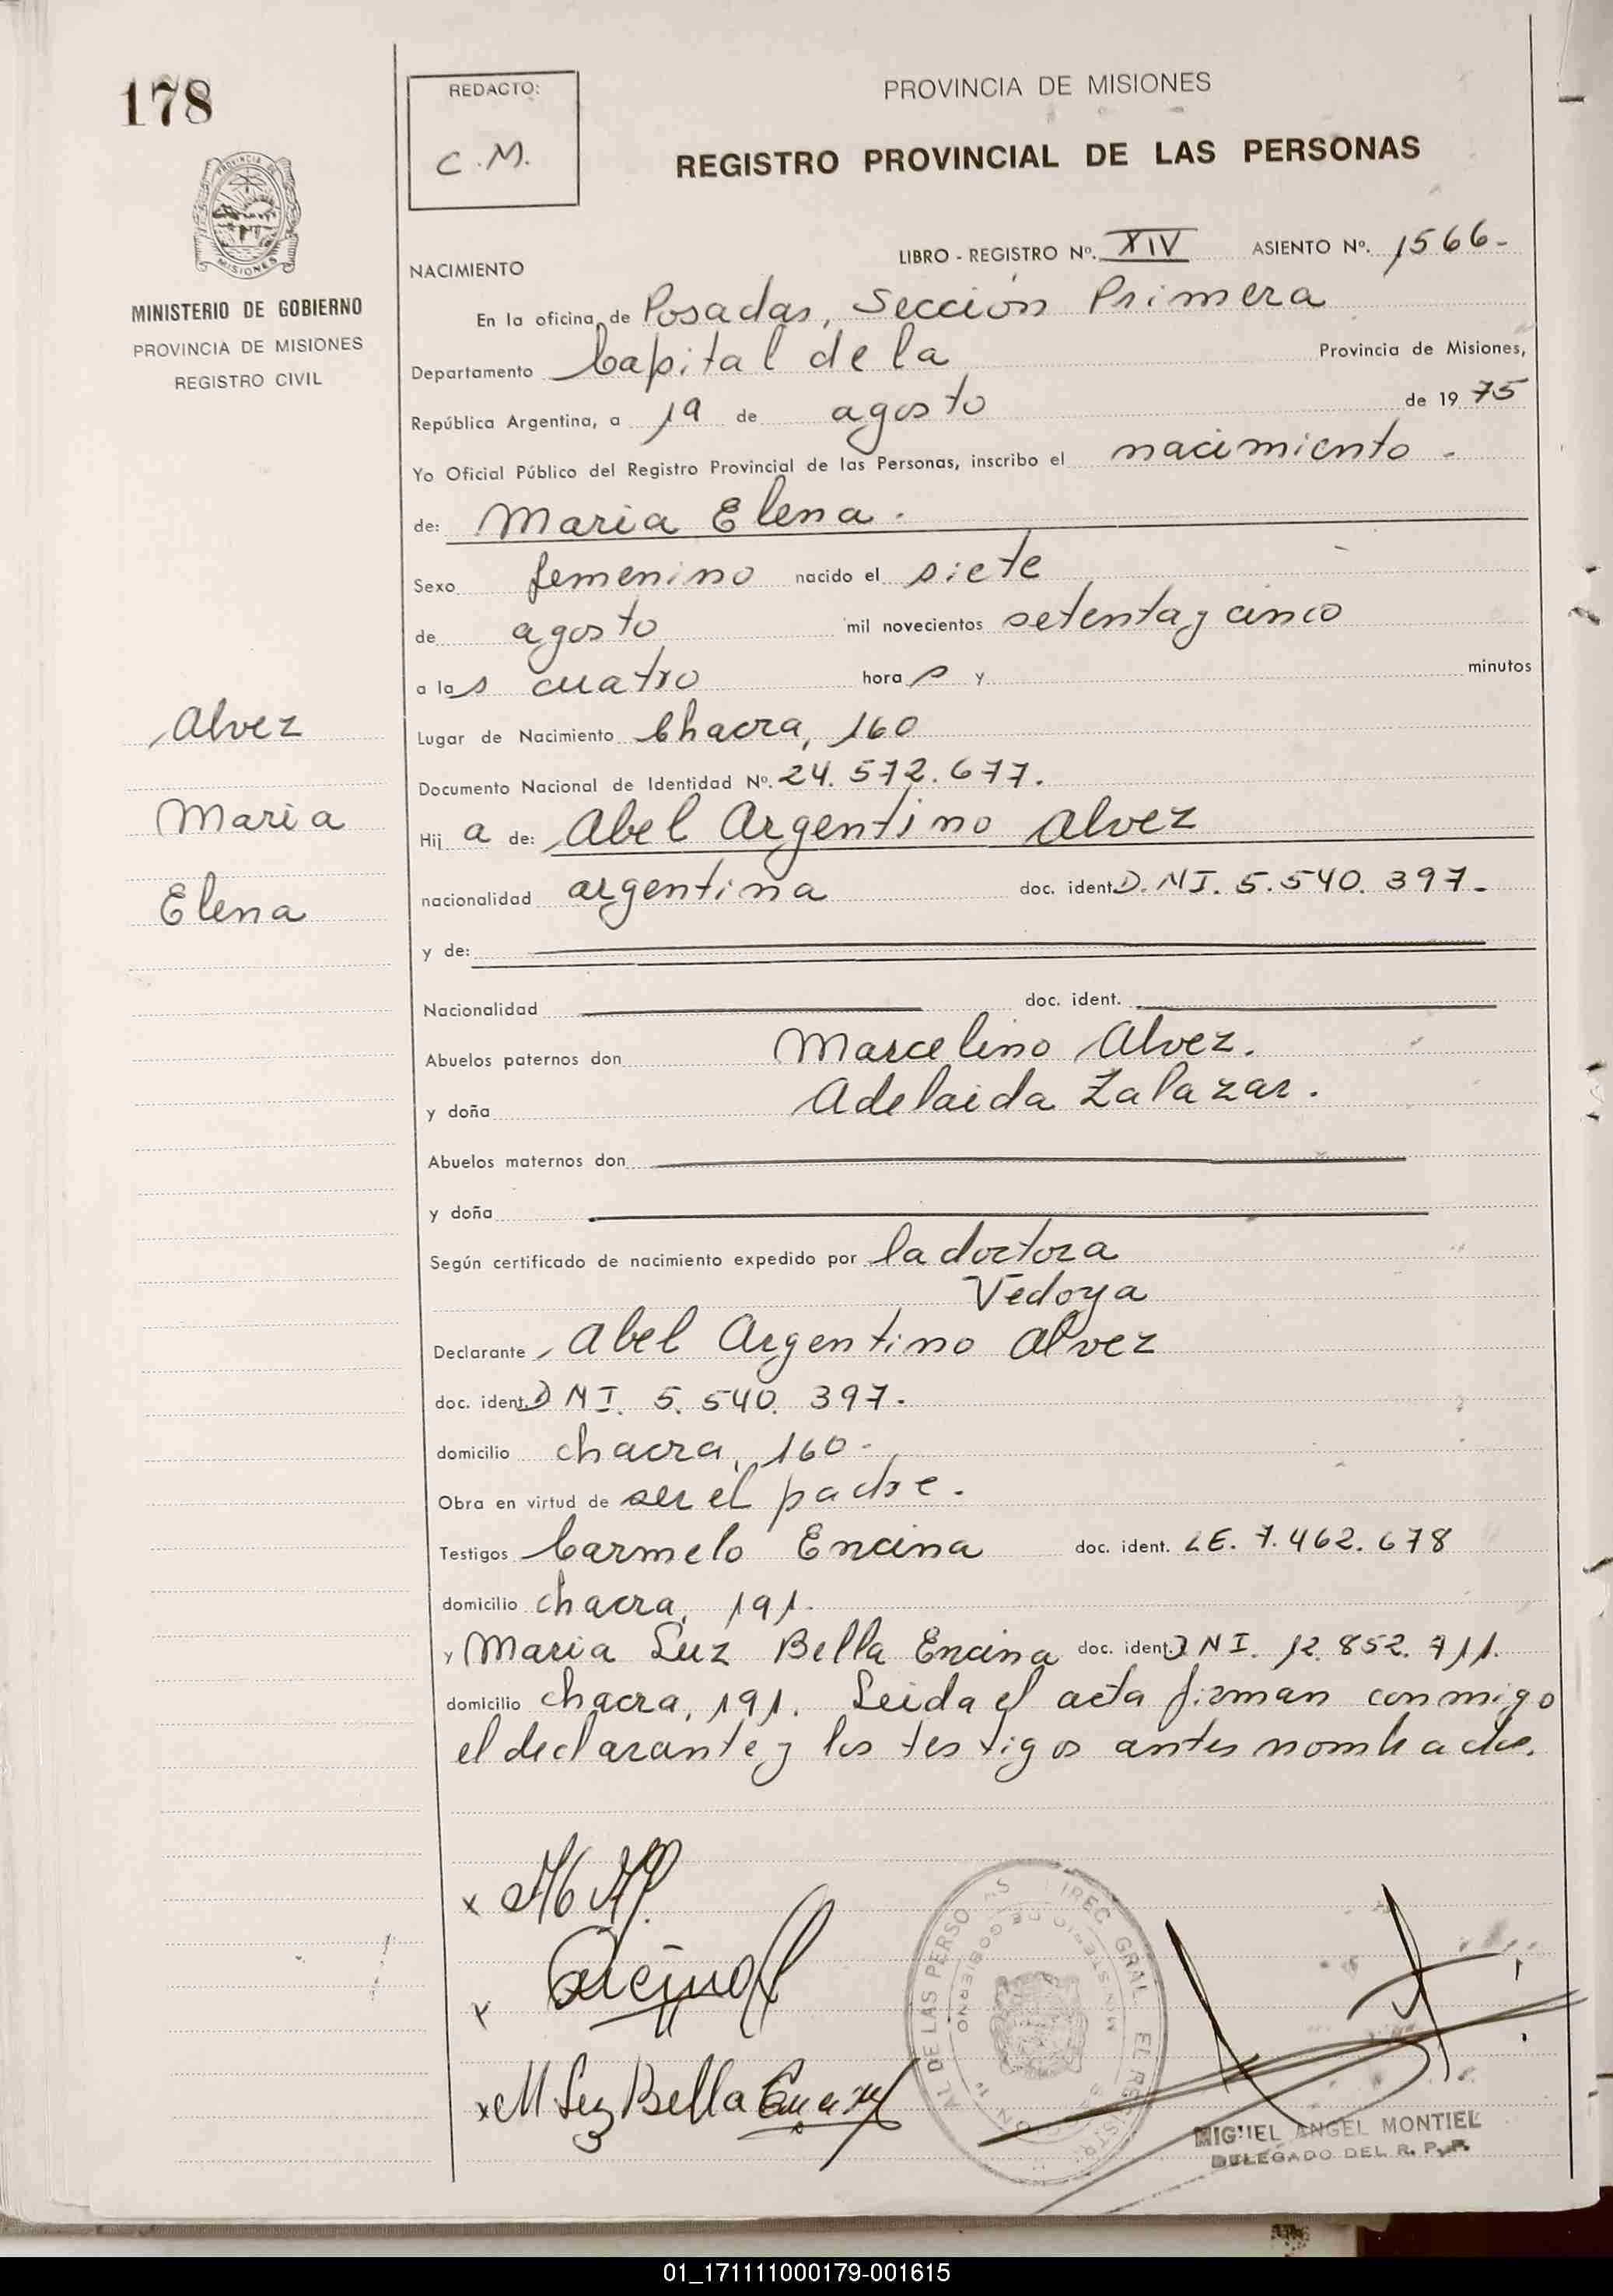 178
REDACTO:
C.M.
PROVINCIA DE MISIONES
REGISTRO PROVINCIAL DE LAS PERSONAS
PROVINCIA DE
MISIONES
MINISTERIO DE GOBIERNO
PROVINCIA DE MISIONES
REGISTRO CIVIL
LIBRO - REGISTRO Nº. XIV ASIENTO Nº. 1566-
NACIMIENTO
En la oficina de Posadas, Sección Primera
Departamento Capital de la Provincia de Misiones,
República Argentina, a 19 de agosto de 1975
Yo Oficial Público del Registro Provincial de las Personas, inscribo el nacimiento.
de: Maria Elena.
Sexo femenino nacido el siete
de agosto mil novecientos setenta y cinco
a las cuatro horas y minutos
Alvez
Lugar de Nacimiento Chacra, 160
Documento Nacional de Identidad Nº. 24.572.677.
Maria
Hija de: Abel Argentino Alvez
Elena
nacionalidad argentina doc. ident. D.NI. 5.540.397.
y de:
Nacionalidad doc. ident.
Abuelos paternos don Marcelino Alvez.
y doña Adelaida Zalazar.
Abuelos maternos don
y doña
Según certificado de nacimiento expedido por la doctora
Vedoya
Declarante Abel Argentino Alvez
doc. ident. DNI. 5.540.397.
domicilio chacra, 160-
Obra en virtud de ser el padre.
Testigos Carmelo Encina doc. ident. LE. 7.462.678
domicilio chacra, 191.
y Maria Luz Bella Encina doc. ident. DNI. 12.852.711.
domicilio chacra, 191. Leida el acta firman conmigo
el declarante y los testigos antes nombrados.
x
x
x M Luz Bella
DIREC. GRAL. EL REGISTR AL DE LAS PERSONAS
MINISTERIO DE GOBIERNO
MIGUEL ANGEL MONTIEL
DELEGADO DEL R. P. P.
01_171111000179-001615